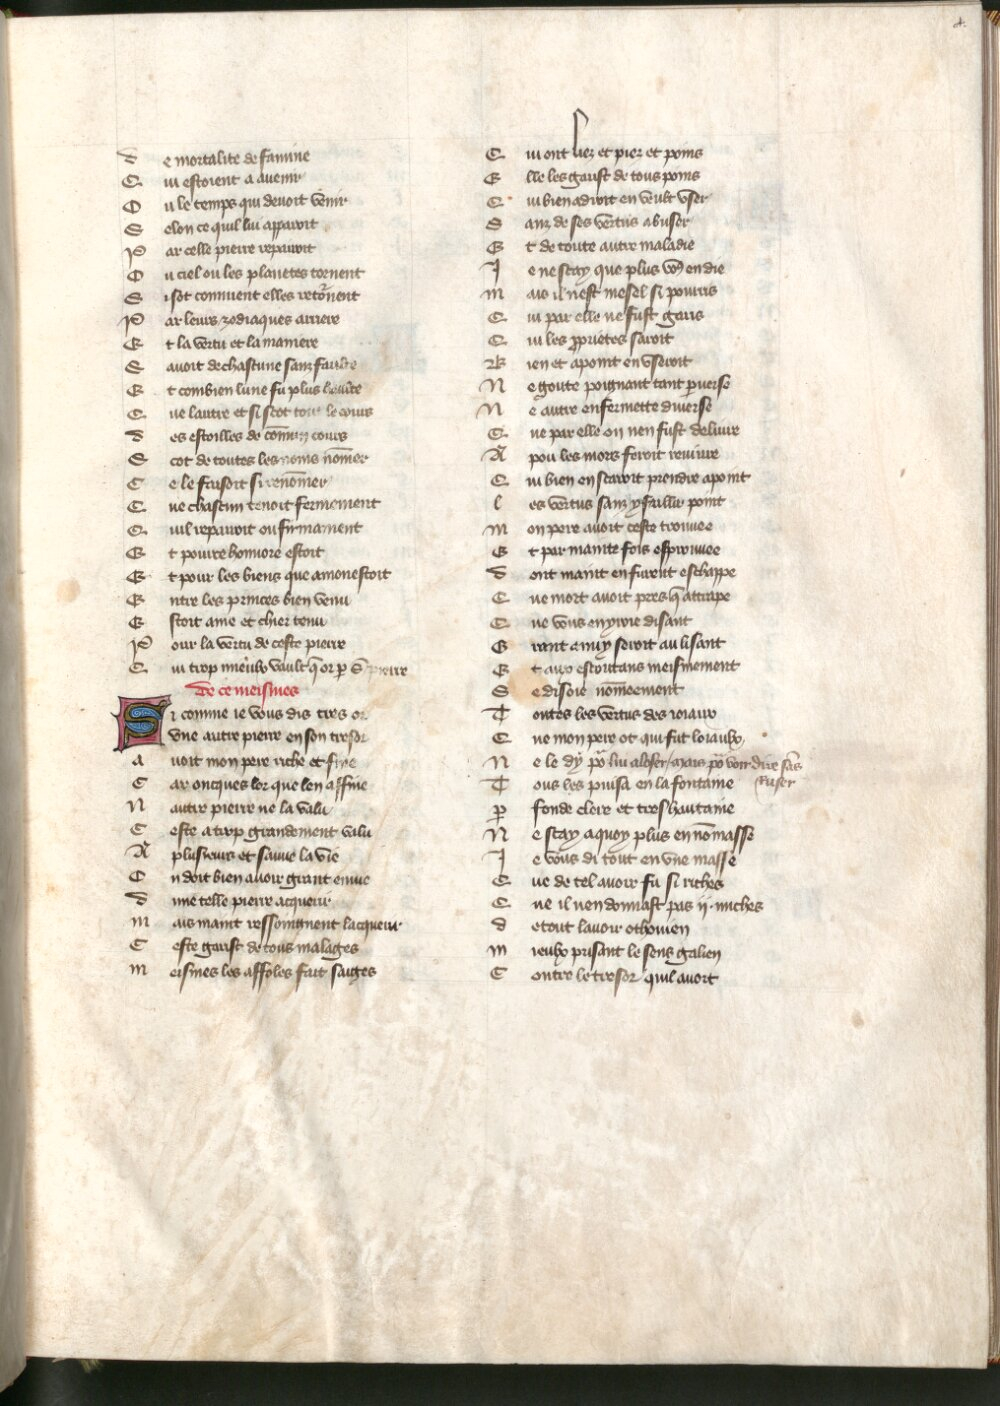 4.
De mortalite de famine
Qui estoient a avenir
Ou le temps qui devoit venir
Selon ce quil lui apparoit
Par celle pierre reparoit
Ou ciel ou les planetes tornent
Si scot comment elles retornent
Par leurs zodiaques arriere
Et la vertu et la maniere
Savoit de chascune sanz faulte
Et combien lune fu plus haulte
Que lautre et si scot tout le cours
Des estoilles de comun cours
Scot de toutes les noms nomer
Ce le faisoit si renomer
Que chascun tenoit fermement
Quil reparoit ou firmament
Et pour ce honnore estoit
Et pour les biens que amonestoit
Entre les princes bien venu
Estoit ame et chier tenu
Pour la vertu de ceste pierre
Qui trop mieulx vault q̄ or p̱ s̄ pierre
De ce meismes
Si comme ie vous dis tres or
Une autre pierre en son tresor
avoit mon pere riche et fine
Car oncques lor que len affine
Nautre pierre ne la valu
Ceste a trop grandement valu
A plusieurs et sauve la vie
On doit bien avoir grant envie
dune telle pierre acquerir
mais maint ressoingnent lacquerir
Ceste garist de tous malages
meismes les affoles fait saiges
Qui ont liez et piez et poins
Elle les garist de tous poins
Qui bien adroit en veult user
Sanz de ses vertus abuser
Et de toute autre maladie
Je ne scay que plus vo⁹ en die
mais il nest mesel si pourris
Qui par elle ne fust garis
Qui les proprietes saroit
Rien et apoint en useroit
Ne goute poignant tant perverse
Ne autre enfermette diverse
Que par elle on nen fust delivre
A pou les mors feroit revivre
Qui bien en scaroit prendre apoint
les vertus sanz y faillir point
mon pere avoit ceste trouvee
Et par mainte fois esprouvee
dont maint en furent eschappe
Que mort avoit presq̄ attrape
Que vous en yroie disant
Grant anuy seroit au lisant
Et aux escoutans meismement
Se disoie nomeement
Toutes les vertus des ioiaux
Que mon pere ot qui fut loiaulx
Ne le dy po² lui aloser / mais po² voir dire sās
Ruser
Tous les puisa en la fontaine
p̱fonde clere et tres haultaine
Ne scay aquoy plus en nomasse
Je vous di tout en une masse
Que de tel avoir fu si riches
Que il nen donnast pas ij. miches
de tout lavoir othovien
mieulx prisant le sens galien
Contre le tresor quil avoit